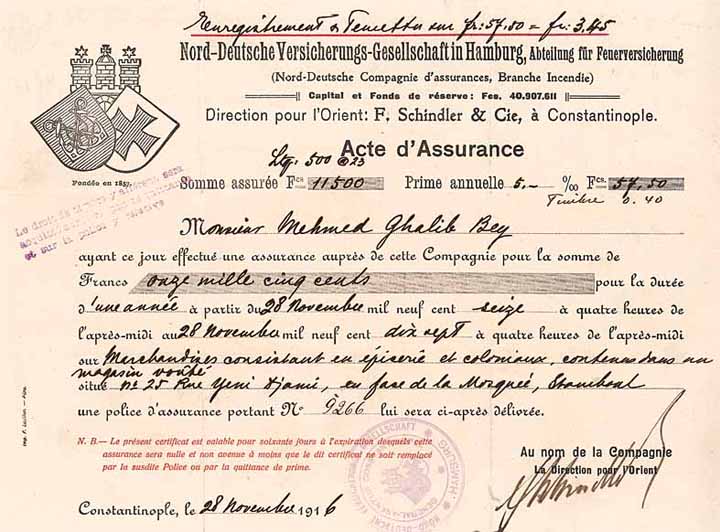 Enregistrement & Temettu sur fr: 57.50 = fr: 3.45
Nord-Deutsche Versicherungs-Gesellschaft in Hamburg, Abteilung für Feuerversicherung
(Nord-Deutsche Compagnie d'assurances, Branche Incendie)
Capital et Fonds de réserve: Fcs. 40.907.611
Direction pour l'Orient: F. Schindler & Cie, à Constantinople.
Fondée en 1857.
Acte d'Assurance
Ltq. 500 @ 23
Somme assurée Fcs 11500 Prime annuelle 5.- ‰ Fcs. 57.50
Timbre 0.40
Le droit de
et sur la police
Monsieur Mehmed Ghalib Bey
ayant ce jour effectué une assurance auprès de cette Compagnie pour la somme de
Francs onze mille cinq cents pour la durée
d'une année à partir du 28 Novembre mil neuf cent seize à quatre heures de
l'après-midi au 28 Novembre mil neuf cent dix sept à quatre heures de l'après-midi
sur Marchandizes consistant en épiserie et coloniaux, contenues dans un
magasin voûté
situé No 25 Rue Yeni Djami, en fase de la Mosquée, Stamboul
une police d'assurance portant No 9266 lui sera ci-après délivrée.
N. B.— Le présent certificat est valable pour soixante jours à l'expiration desquels cette
assurance sera nulle et non avenue à moins que le dit certificat ne soit remplacé
par la susdite Police ou par la quittance de prime.
Au nom de la Compagnie
La Direction pour l'Orient
Constantinople, le 28 Novembre 1916